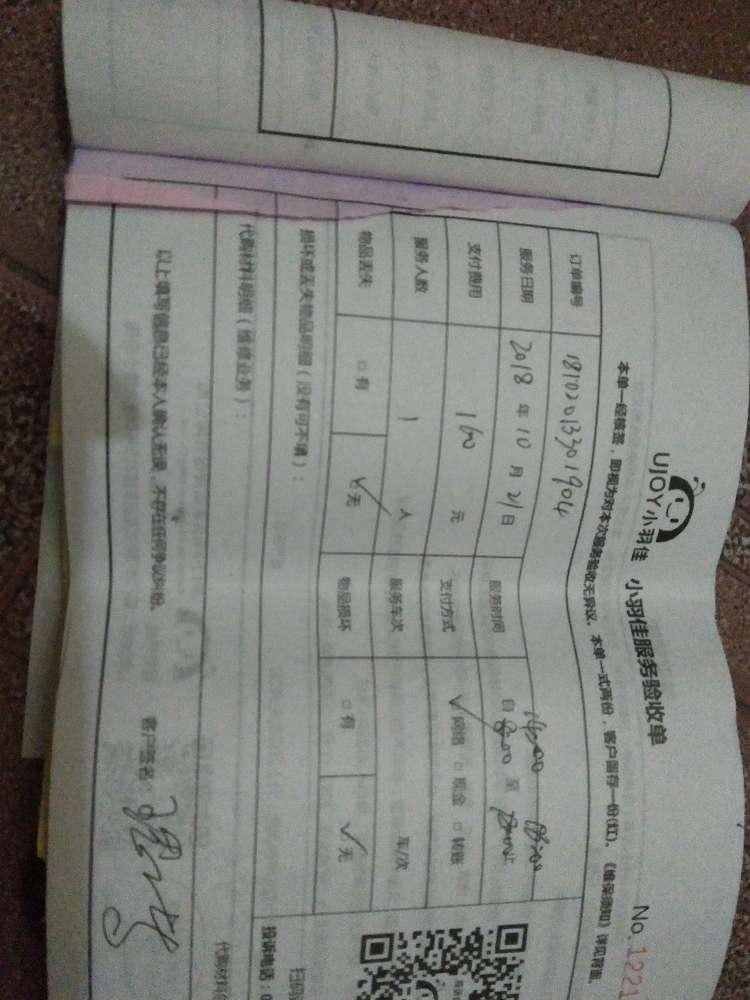 UJOY小羽佳 小羽佳服务验收单
No.1221
本单一经核签，即视为对本次服务验收无异议。本单一式两份，客户留存一份(红)。《维保须知》详见背面。
订单编号 181020133301904
服务日期 2018年10月21日 服务时间 自 14:00 至
支付费用 160元 支付方式 √网络 □现金 □转账
服务人数 1人 服务车次 车/次
物品丢失 □有 √无 物品损坏 □有 √无
损坏或丢失物品明细（没有可不填）：
代购材料明细（维修业务）：
代购材料
扫码
投诉电话：0
以上填写信息已经本人确认无误，不存在任何争议纠纷。
客户签名：